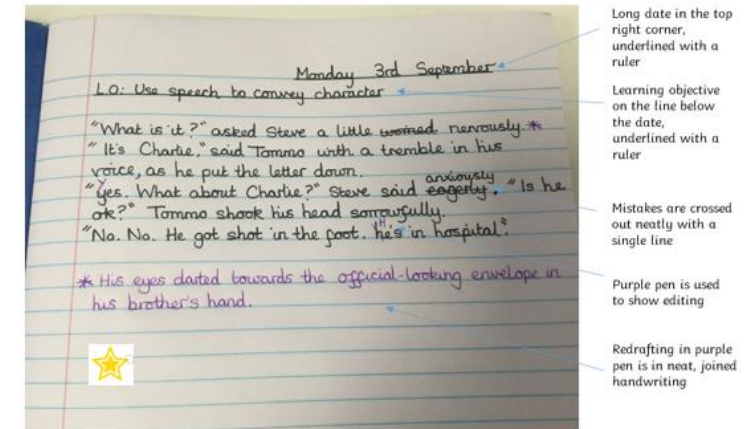 Monday 3rd September
L.O: Use speech to convey character
"What is it?" asked Steve a little worried nervously.*
"It's Charlie," said Tommo with a tremble in his
voice, as he put the letter down.
"Yes. What about Charlie?" Steve said eagerly anxiously. "Is he
ok?" Tommo shook his head sorrowfully.
"No. No. He got shot in the foot. He's in hospital".
* His eyes darted towards the official-looking envelope in
his brother's hand.
Long date in the top
right corner,
underlined with a
ruler
Learning objective
on the line below
the date,
underlined with a
ruler
Mistakes are crossed
out neatly with a
single line
Purple pen is used
to show editing
Redrafting in purple
pen is in neat, joined
handwriting